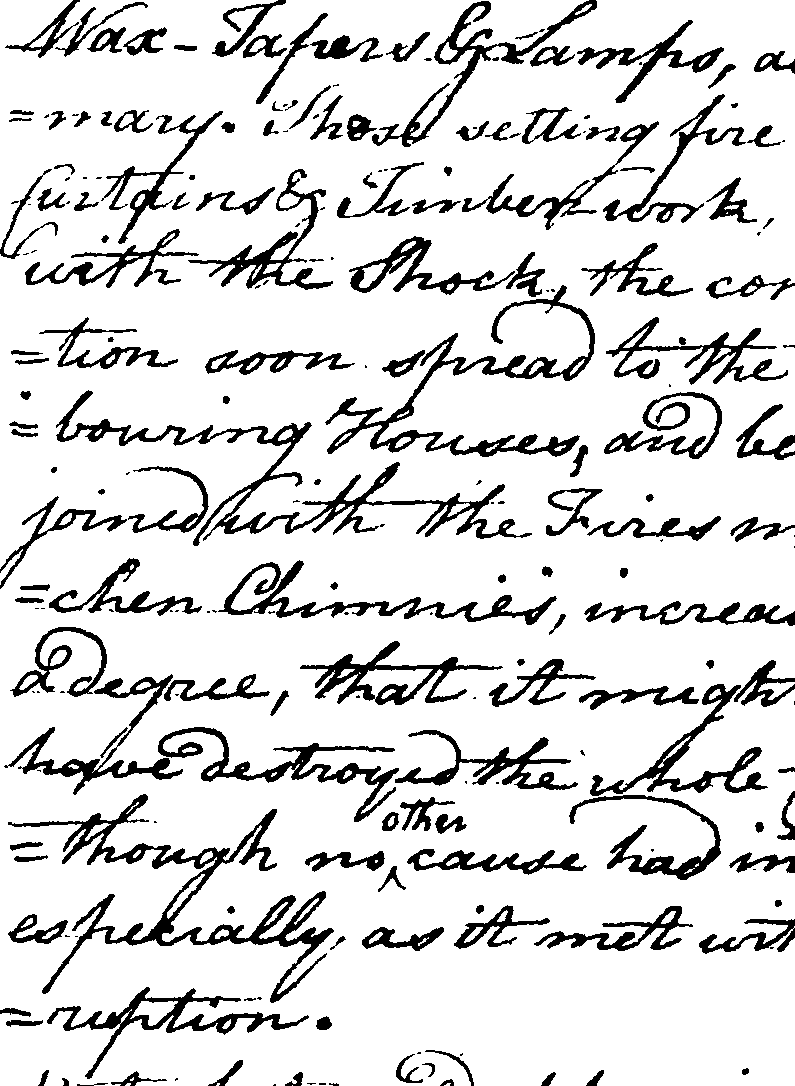 Wax-Tapers & Lamps, as
=mary. Those setting fire
Curtains & Timber-work,
with the Shock, the con
=tion soon spread to the
=bouring Houses, and be
joined with the Fires
=chen Chimnies, increas
a degree, that it migh
have destroyed the whole
=though no other cause had in
especially, as it met wit
=ruption.